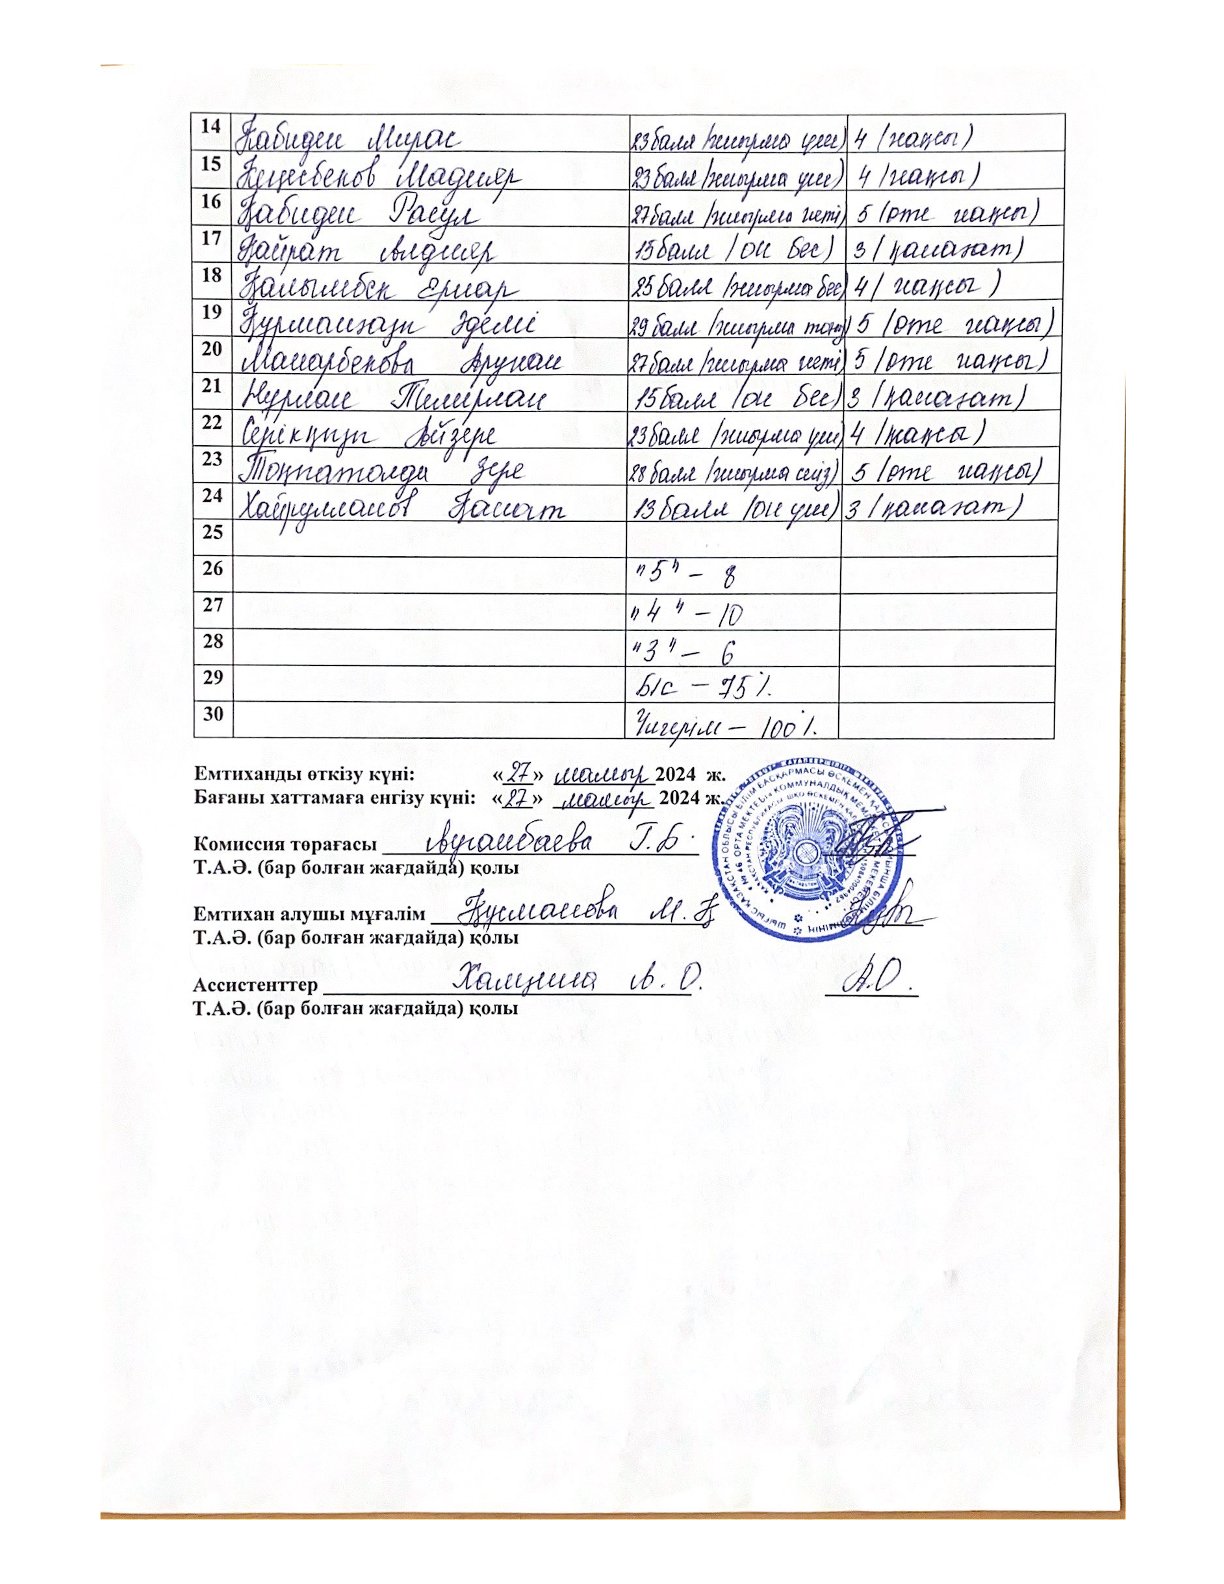 14 Қабиден Мирас 23 балл /жиырма үш/ 4 /жақсы/
15 Мадияр 23 балл /жиырма үш/ 4 /жақсы/
16 Қабиден Расул 27 балл /жиырма жеті/ 5 /өте жақсы/
17 Қайрат Алдияр 15 балл /он бес/ 3 /қанағат/
18 Қалымбек Ернар 25 балл /жиырма бес/ 4 /жақсы/
19 Құрманғазы Әделі 29 балл /жиырма тоғыз/ 5 /өте жақсы/
20 Манарбекова Аружан 27 балл /жиырма жеті/ 5 /өте жақсы/
21 Нұрлан Тимирлан 15 балл /он бес/ 3 /қанағат/
22 Серікқызы Айзере 23 балл /жиырма үш/ 4 /жақсы/
23 Зере 28 балл /жиырма сегіз/ 5 /өте жақсы/
24 Хайрулланов 13 балл /он үш/ 3 /қанағат/
25
26 "5" – 8
27 "4" – 10
28 "3" – 6
29 Б/с – 75%.
30 Үлгерім – 100%.
Емтиханды өткізу күні: «27» мамыр 2024 ж.
Бағаны хаттамаға енгізу күні: «27» мамыр 2024 ж.
Комиссия төрағасы Ауганбаева Г.Б.
Т.А.Ә. (бар болған жағдайда) қолы
Емтихан алушы мұғалім Құсманова М.Қ
Т.А.Ә. (бар болған жағдайда) қолы
Ассистенттер А.О. А.О.
Т.А.Ә. (бар болған жағдайда) қолы